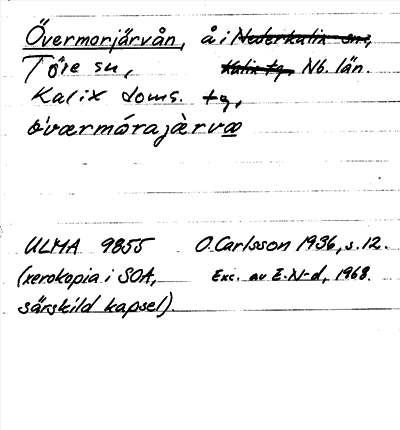 Övermorjärvån, å i Nederkalix sn,
Töre sn, Kalix tg, Nb. län.
Kalix doms. tg,
ö̀værmórajærvæ
ULMA 9855 O. Carlsson 1936, s. 12.
(xerokopia i SOA, Exc. av E. N-d, 1968.
särskild kapsel).